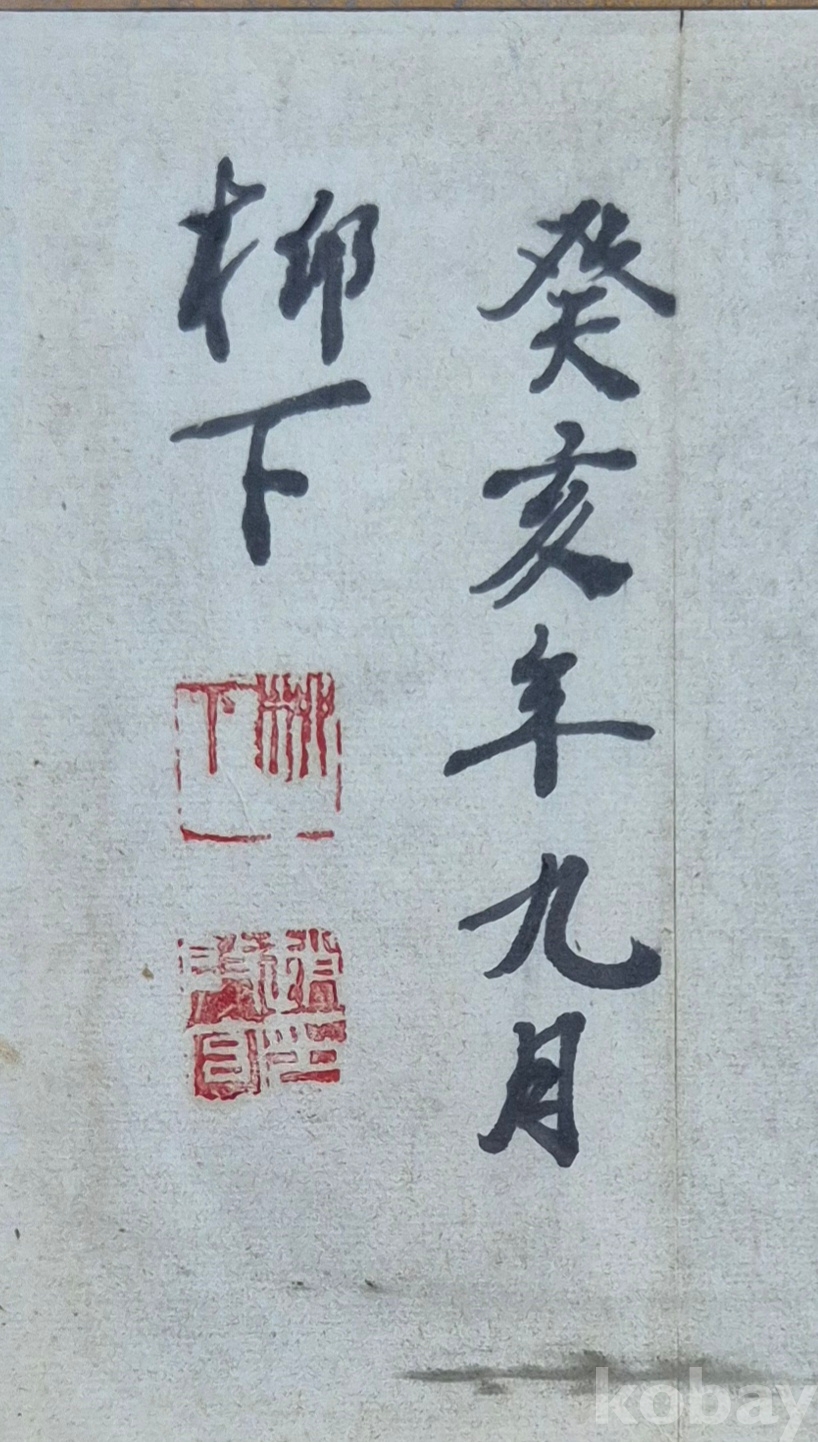 癸亥年九月
柳下
柳下
kobay